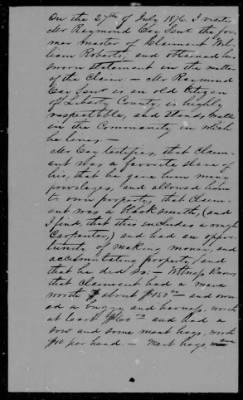 On the 27th of July 1876 I visited
Mr Raymond Cay Senr the for-
mer Master of Claimant Wil-
liam Roberts, and obtained his
sworn statement on the matter
of the Claim — Mr Raymond
Cay Senr is an old Citizen
of Liberty County, is highly
respectable, and stands well
in the Community in which
he lives —
Mr Cay testifies, that Claim-
ant was a favorite slave of
his, that he gave him many
privileges, and allowed him
to own property, that Claim-
ant was a blacksmith, (and
I find, that this includes a rough
Carpenter,) and had an oppor-
tunity of making money and
accumulating property, and
that he did so — Witness knows
that Claimant had a mare
worth about $150 00 and own-
ed a buggy and harness, worth
at least $60 00 and had a
sow and some meat hogs, worth
$10 per head — Meat hogs,